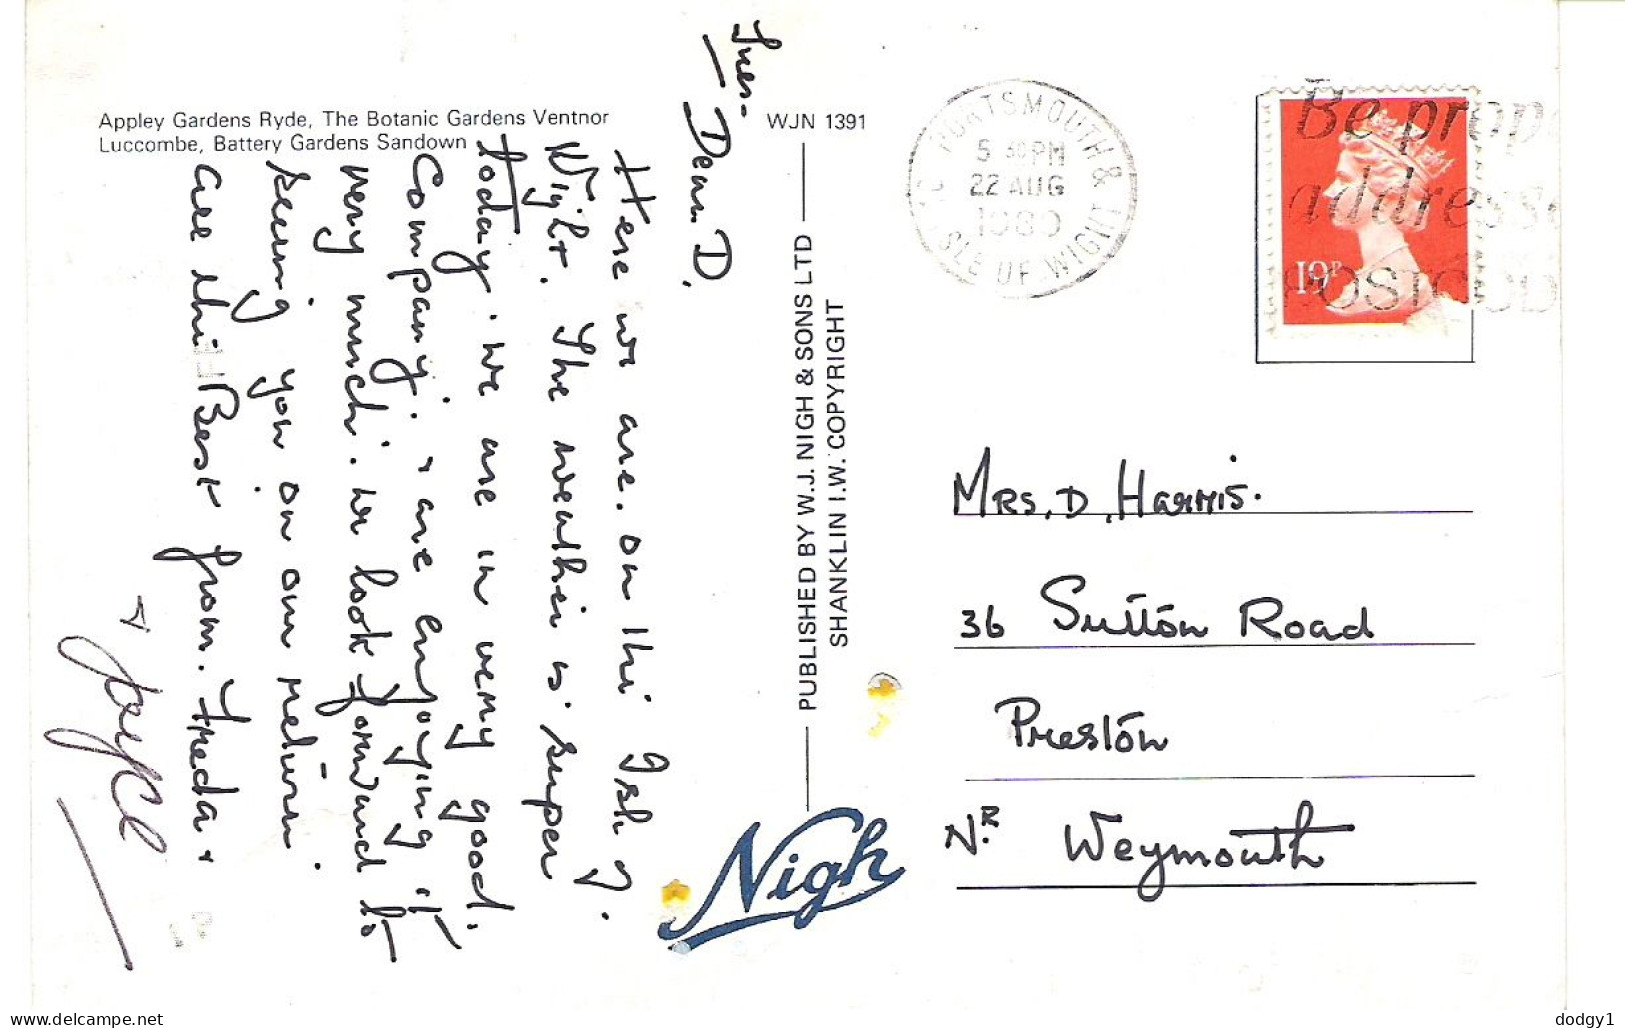 Appley Gardens Ryde, The Botanic Gardens Ventnor
Luccombe, Battery Gardens Sandown
WJN 1391
Tues-
Dear. D.
Here we are. on the Isle of
Wight. The weather is super
today. We are in very good.
Company. & are enjoying it
very much. We look forward to
seeing you on our return.
are the Best from. Freda &
& Joyce
PUBLISHED BY W.J. NIGH & SONS LTD
SHANKLIN I.W. COPYRIGHT
Nigh
PORTSMOUTH &
ISLE OF WIGHT
5 30 PM
22 AUG
1989
Be prop
address
POSTCOD
19P
MRS. D. Harris.
36 Sutton Road
Preston
Nr. Weymouth
www.delcampe.net
dodgy1